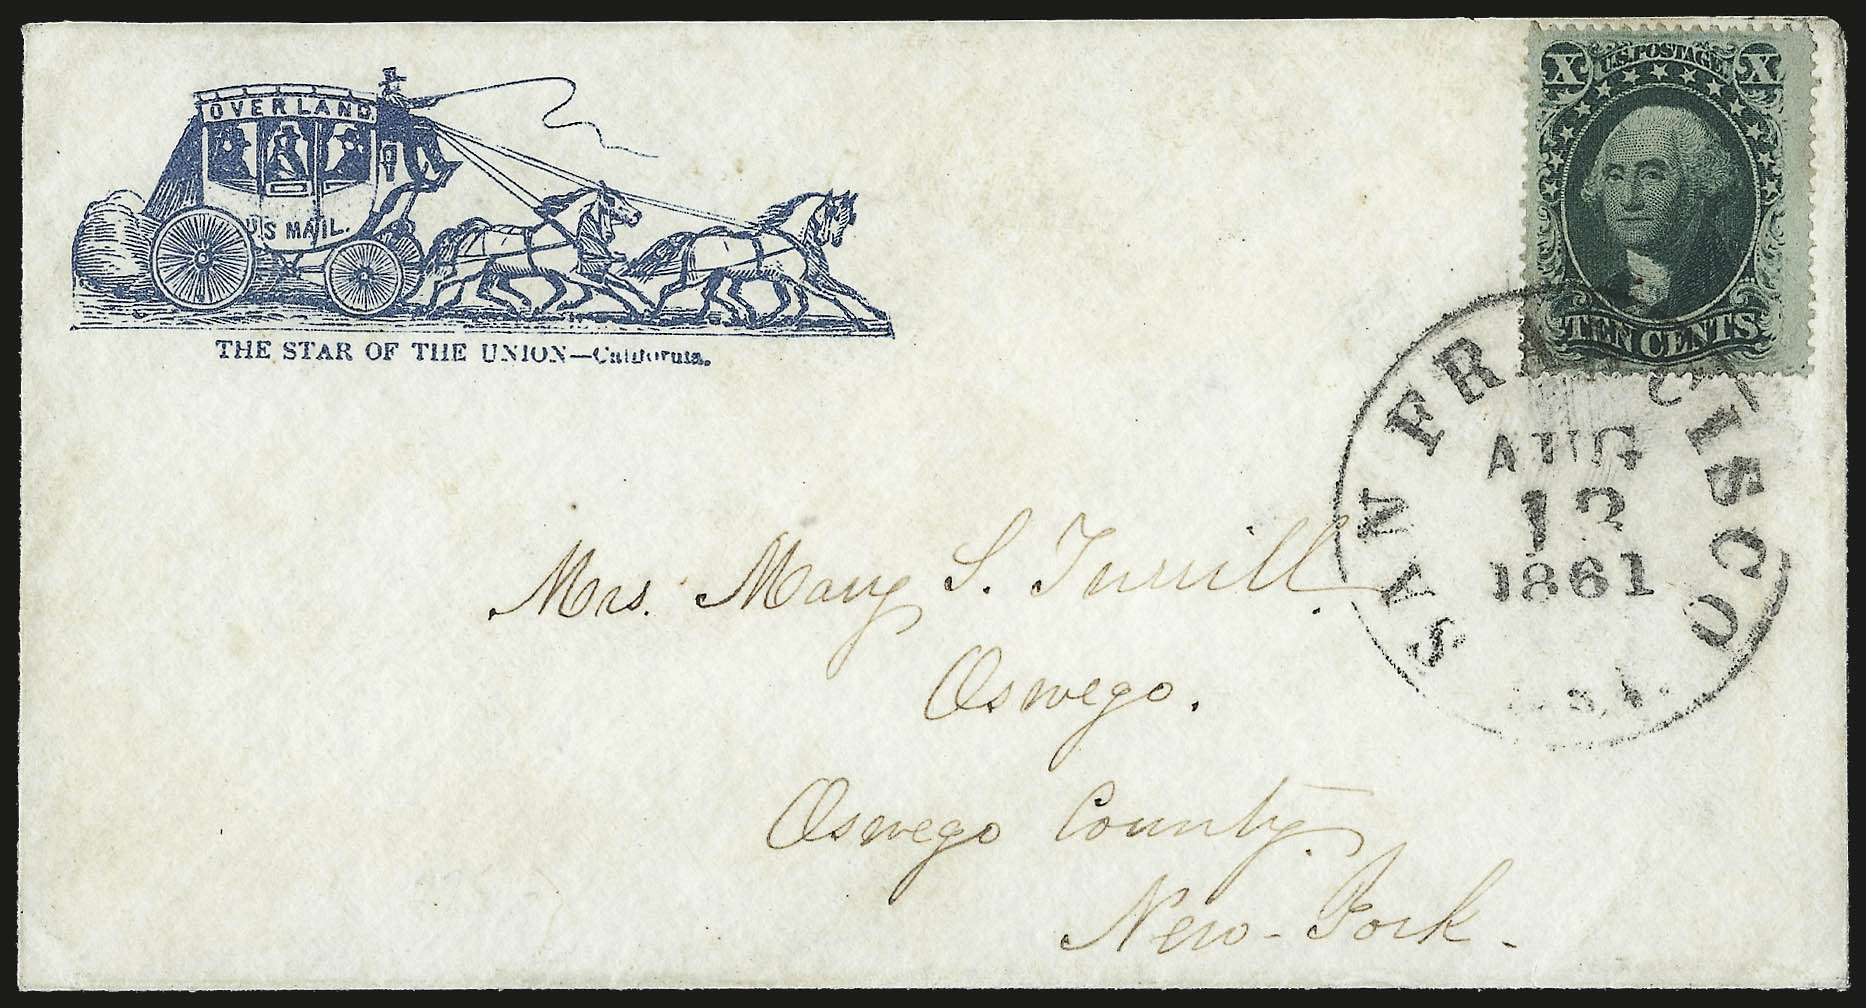 OVERLAND.
U.S MAIL.
THE STAR OF THE UNION—California.
X U.S. POSTAGE. X
TEN CENTS
SAN FRANCISCO
AUG
1861
Mrs. Mary S. Turrill.
Oswego.
Oswego County.
New-York-